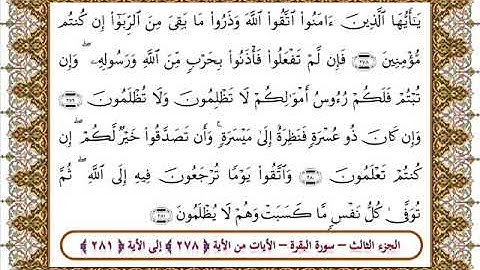 يَـٰٓأَيُّهَا ٱلَّذِينَ ءَامَنُوا۟ ٱتَّقُوا۟ ٱللَّهَ وَذَرُوا۟ مَا بَقِىَ مِنَ ٱلرِّبَوٰٓا۟ إِن كُنتُم
مُّؤْمِنِينَ ﴿٢٧٨﴾ فَإِن لَّمْ تَفْعَلُوا۟ فَأْذَنُوا۟ بِحَرْبٍ مِّنَ ٱللَّهِ وَرَسُولِهِۦ ۖ وَإِن
تُبْتُمْ فَلَكُمْ رُءُوسُ أَمْوَٰلِكُمْ لَا تَظْلِمُونَ وَلَا تُظْلَمُونَ ﴿٢٧٩﴾
وَإِن كَانَ ذُو عُسْرَةٍ فَنَظِرَةٌ إِلَىٰ مَيْسَرَةٍ ۚ وَأَن تَصَدَّقُوا۟ خَيْرٌ لَّكُمْ ۖ إِن
كُنتُمْ تَعْلَمُونَ ﴿٢٨٠﴾ وَٱتَّقُوا۟ يَوْمًا تُرْجَعُونَ فِيهِ إِلَى ٱللَّهِ ۖ ثُمَّ
تُوَفَّىٰ كُلُّ نَفْسٍ مَّا كَسَبَتْ وَهُمْ لَا يُظْلَمُونَ ﴿٢٨١﴾
الجزء الثالث – سورة البقرة – الآيات من الآية ﴿٢٧٨﴾ إلى الآية ﴿٢٨١﴾